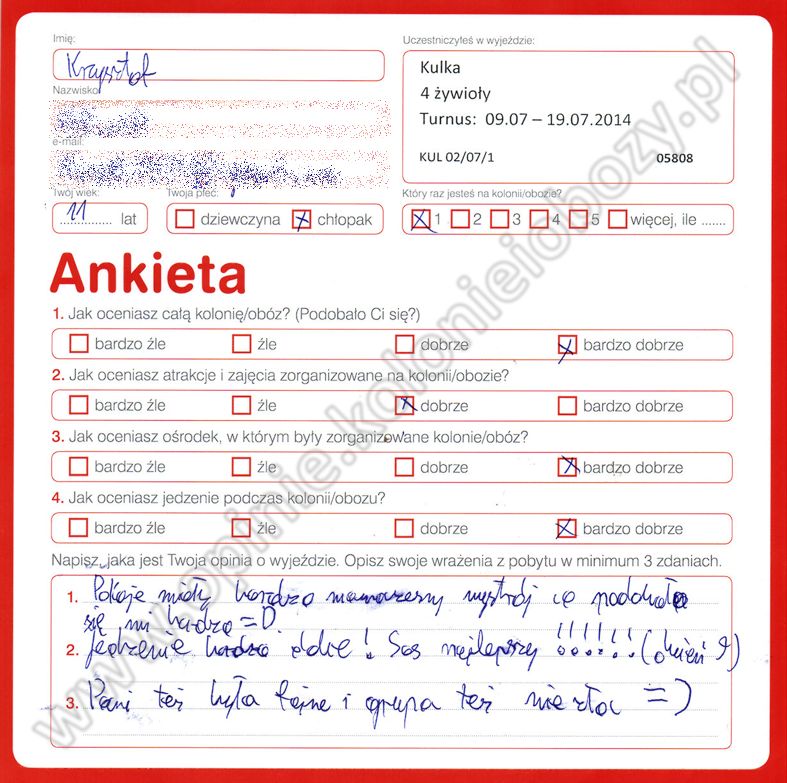 Imię:
Uczestniczyłeś w wyjeździe:
Krzysztof
Kulka
4 żywioły
Turnus: 09.07 – 19.07.2014
KUL 02/07/1 05808
Nazwisko
e-mail:
Twój wiek: Twoja płeć: Który raz jesteś na kolonii/obozie?
11 lat dziewczyna chłopak 1 2 3 4 5 więcej, ile .......
Ankieta
1. Jak oceniasz całą kolonię/obóz? (Podobało Ci się?)
bardzo źle źle dobrze bardzo dobrze
2. Jak oceniasz atrakcje i zajęcia zorganizowane na kolonii/obozie?
bardzo źle źle dobrze bardzo dobrze
3. Jak oceniasz ośrodek, w którym były zorganizowane kolonie/obóz?
bardzo źle źle dobrze bardzo dobrze
4. Jak oceniasz jedzenie podczas kolonii/obozu?
bardzo źle źle dobrze bardzo dobrze
Napisz, jaka jest Twoja opinia o wyjeździe. Opisz swoje wrażenia z pobytu w minimum 3 zdaniach.
1. Pokoje miały bardzo wystrój co podobało
się mi bardzo =D
2. Jedzenie bardzo dobre! Sos najlepszy !!!!!! (dzień 9)
3. Pani też była fajne i grupa też nie zła =)
www.opinie.kolonieiobozy.pl